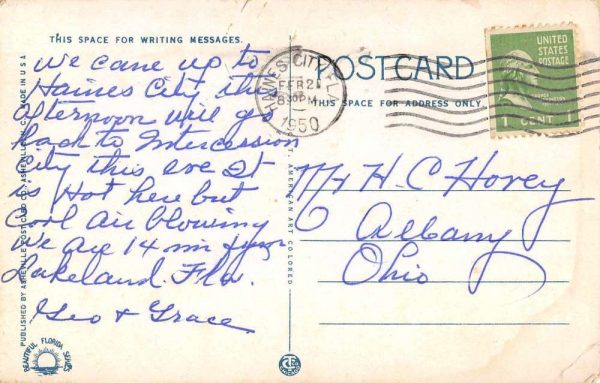 THIS SPACE FOR WRITING MESSAGES.
We came up to
Haines City this
afternoon will go
back to Intercession
City this eve It
is Hot here but
Cool Air blowing
We are 14 mi from
Lakeland. Fla.
Geo & Grace
PUBLISHED BY ASHEVILLE POST CARD CO., ASHEVILLE, N. C. MADE IN U S A
BEAUTIFUL FLORIDA SERIES
AMERICAN ART COLORED
POSTCARD
THIS SPACE FOR ADDRESS ONLY
HAINES CITY, FLA.
FEB 2
8 30 PM
1950
UNITED
STATES
POSTAGE
1 CENT 1
Mr H. C Hovey
Albany
Ohio